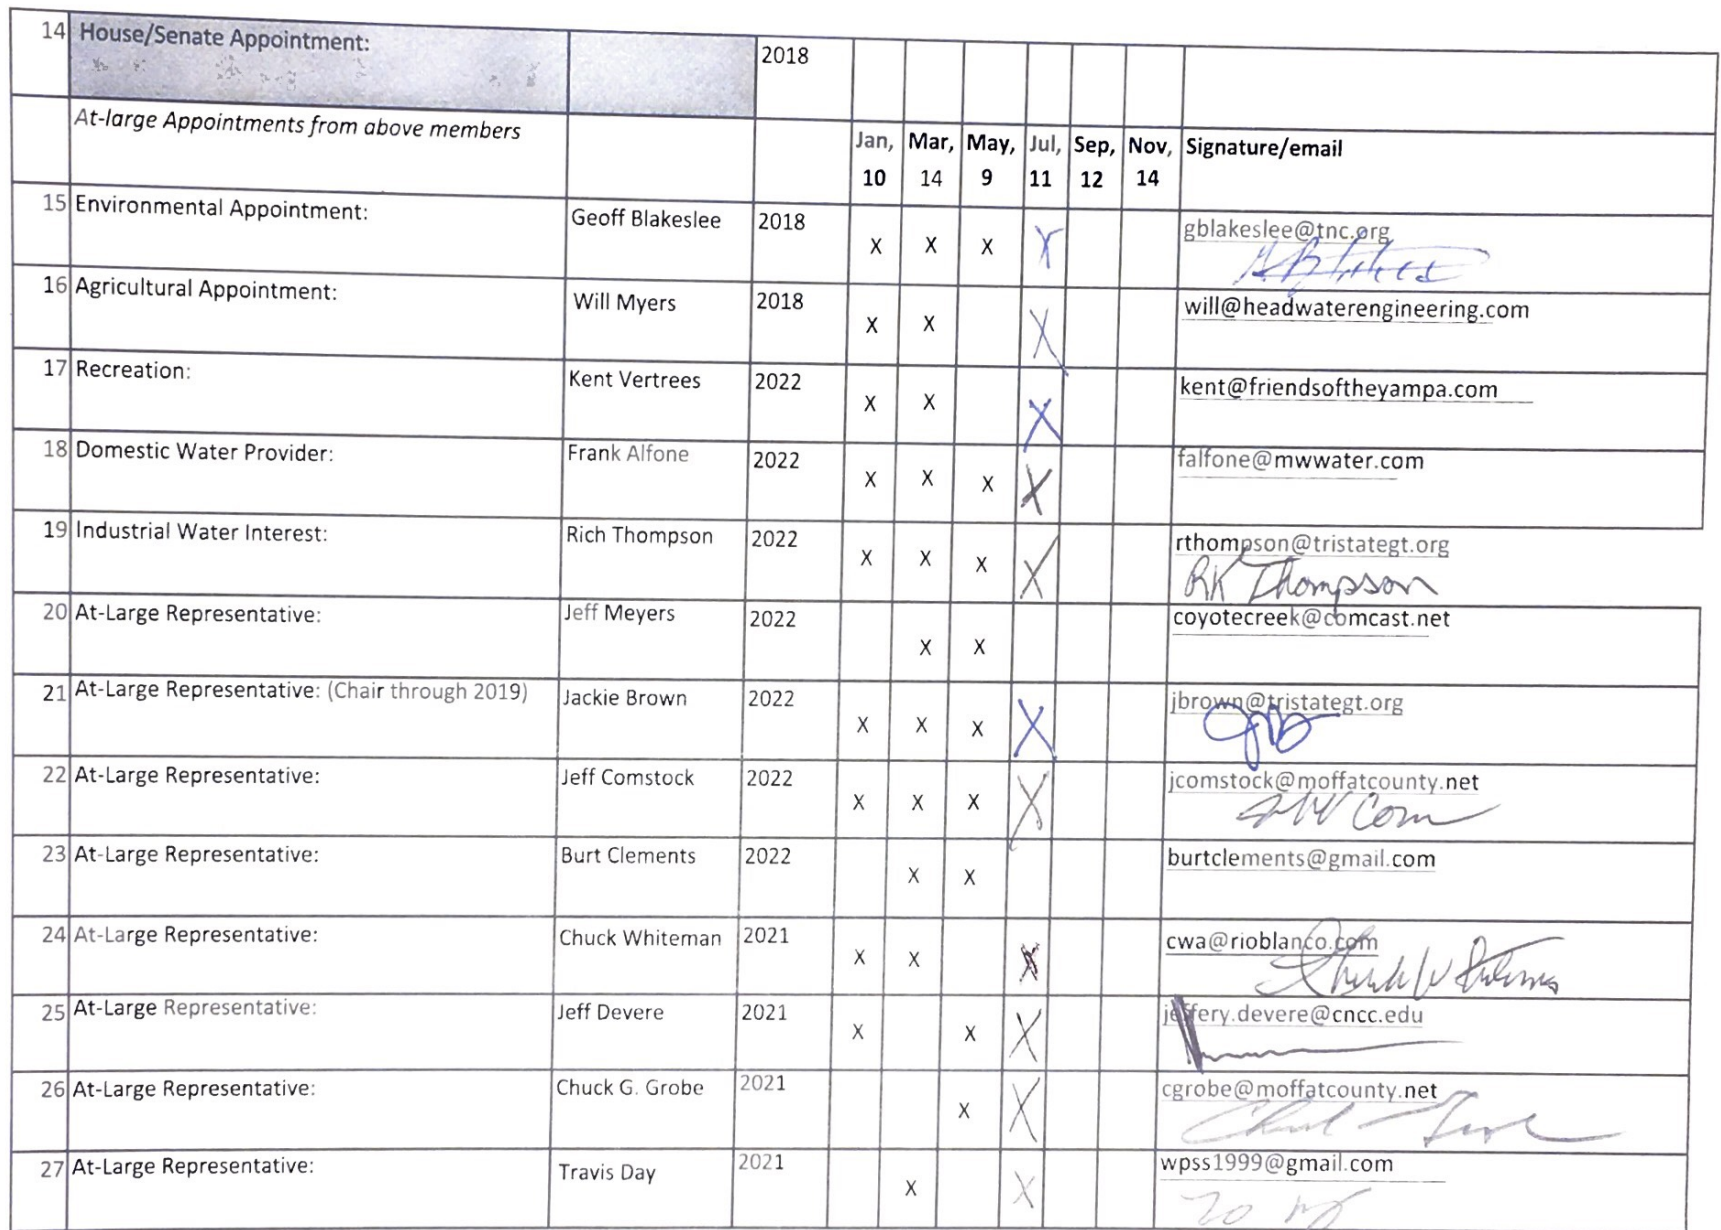 14 House/Senate Appointment: 2018
At-large Appointments from above members Jan, 10 Mar, 14 May, 9 Jul, 11 Sep, 12 Nov, 14 Signature/email
15 Environmental Appointment: Geoff Blakeslee 2018 X X X X gblakeslee@tnc.org
16 Agricultural Appointment: Will Myers 2018 X X X will@headwaterengineering.com
17 Recreation: Kent Vertrees 2022 X X X kent@friendsoftheyampa.com
18 Domestic Water Provider: Frank Alfone 2022 X X X X falfone@mwwater.com
19 Industrial Water Interest: Rich Thompson 2022 X X X X rthompson@tristategt.org
RK Thompson
20 At-Large Representative: Jeff Meyers 2022 X X coyotecreek@comcast.net
21 At-Large Representative: (Chair through 2019) Jackie Brown 2022 X X X X jbrown@tristategt.org
22 At-Large Representative: Jeff Comstock 2022 X X X X jcomstock@moffatcounty.net
23 At-Large Representative: Burt Clements 2022 X X burtclements@gmail.com
24 At-Large Representative: Chuck Whiteman 2021 X X X cwa@rioblanco.com
25 At-Large Representative: Jeff Devere 2021 X X X jeffery.devere@cncc.edu
26 At-Large Representative: Chuck G. Grobe 2021 X X cgrobe@moffatcounty.net
27 At-Large Representative: Travis Day 2021 X X wpss1999@gmail.com